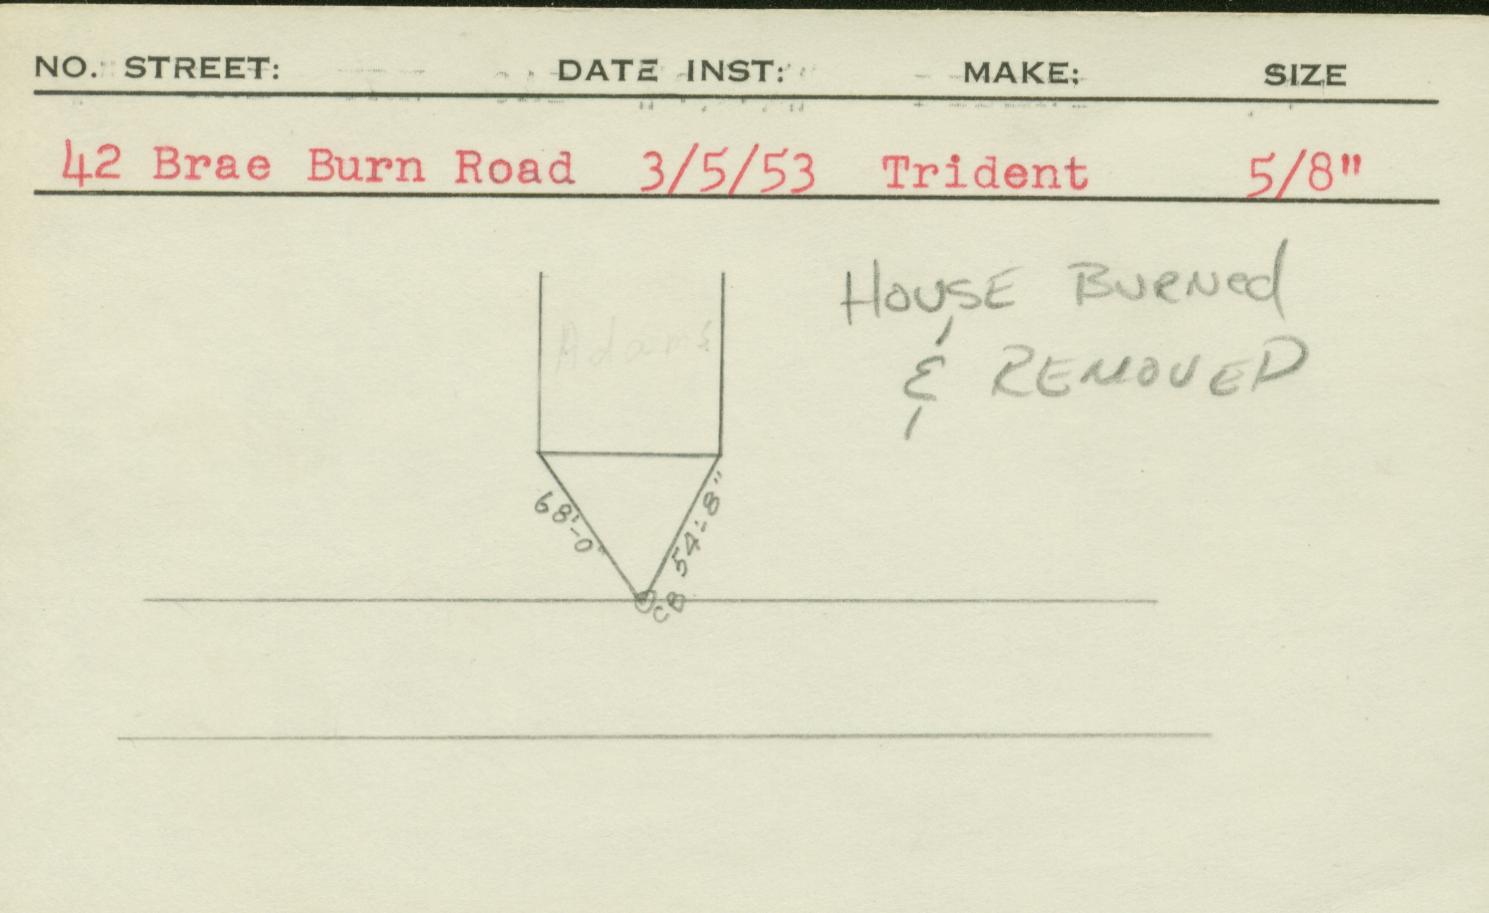 NO. STREET: DATE INST: MAKE: SIZE
42 Brae Burn Road 3/5/53 Trident 5/8"
HOUSE BURNed
& REMOVED
Adams
68'-0"
54'-8"
CB